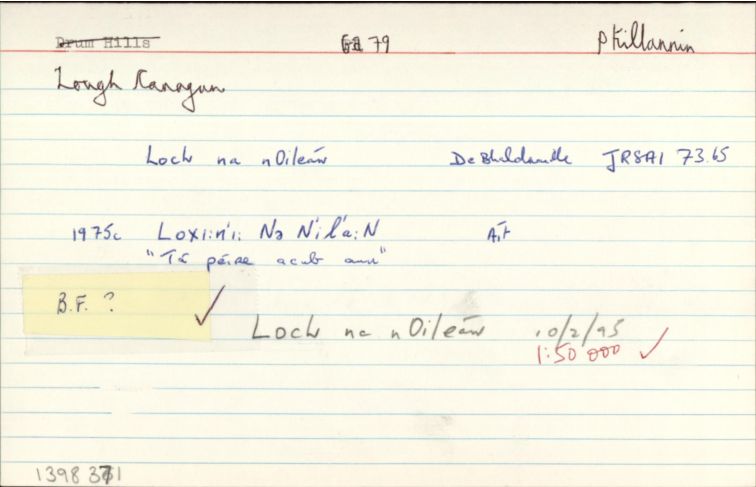 Drum Hills Ga 79 P Killannin
Lough Kanagun
Loch na nOileán De Bhaldraithe JRSAI 73.65
1975c Loxi:n'i: Nə N'il'a:N Áit
"Tá péire acub ann"
B.F. ? ✓
Loch na nOileán 10/2/95
1:50 000 ✓
1398 371